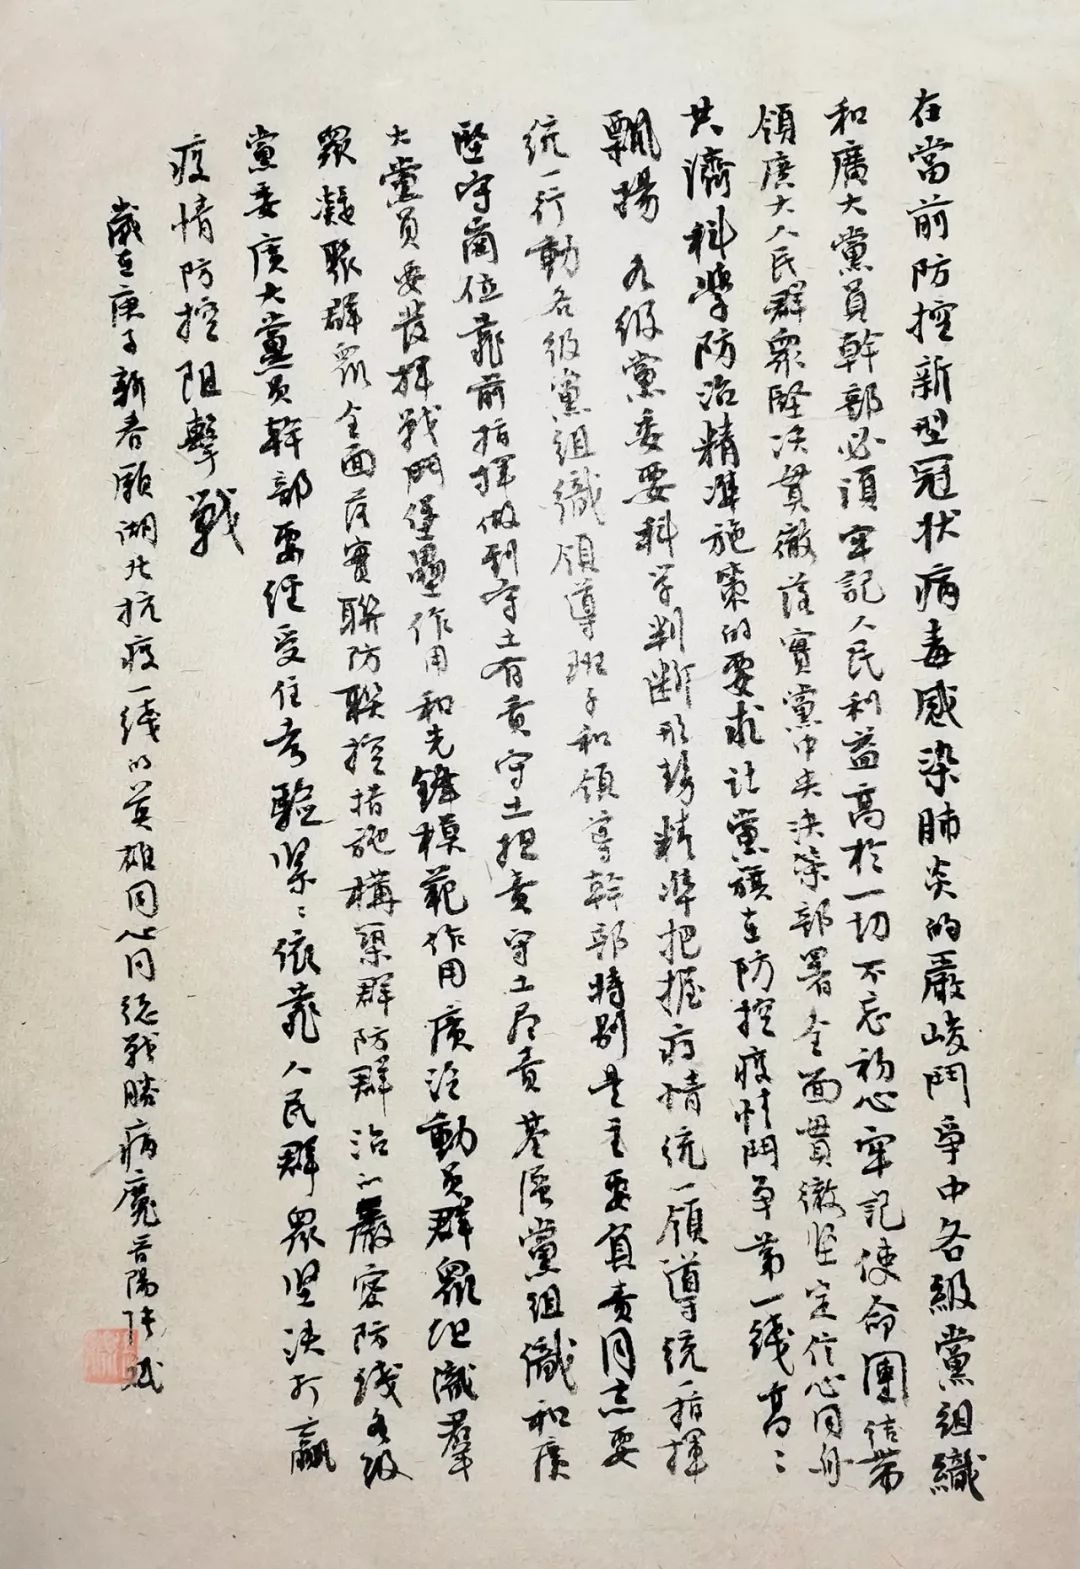 在當前防控新型冠状病毒感染肺炎的嚴峻鬥爭中各級黨組織
和廣大黨員幹部必須牢記人民利益高於一切不忘初心牢記使命團结带
領廣大人民群眾堅决贯徹落實黨中央决策部署全面貫徹坚定信心同舟
共濟科學防治精準施策的要求让黨旗在防控疫情鬥争第一线高〻
飄揚各级黨委要科学判断形势精準把握疫情统一領導统一指揮
统一行動各级黨组織领導班子和领導幹部時别是主要負责同志要
堅守崗位靠前指揮做到守土有责守土担责守土尽责基层黨组織和廣
大黨员要发揮戰鬥堡壘作用和先鋒模範作用廣泛動员群眾组織羣
眾凝聚群眾全面落實聯防聯控措施構築群防群治的嚴密防线各级
黨委廣大黨员幹部要经受住考驗紧〻依靠人民群眾坚决打赢
疫情防控阻擊戰
歲在庚子新春願湖北抗疫一线的英雄同心同德戰勝病魔晉陽张斌